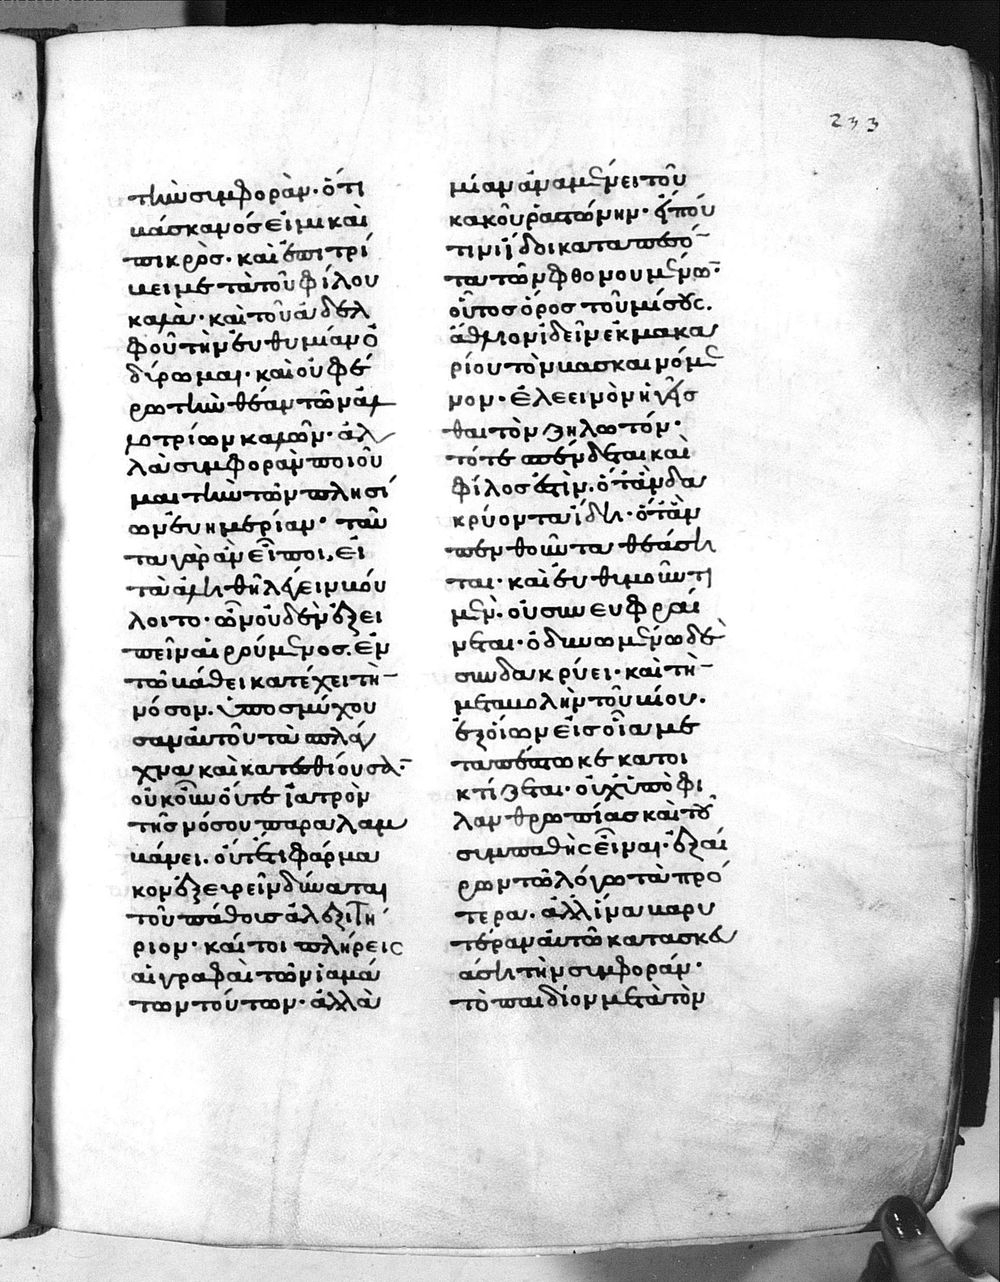 233
τὴν συμφορὰν· ὅτι
βάσκανός εἰμι καὶ
πικρὸς· καὶ ἐπιτρί
βει με τὰ τοῦ φίλου
καλὰ· καὶ τοῦ ἀδελ
φοῦ τὴν εὐθυμίαν ὀ
δύρομαι· καὶ οὐ φέ
ρω τὴν θέαν τῶν ἀλ
λοτρίων καλῶν· ἀλ
λὰ συμφορὰν ποιοῦ
μαι τὴν τῶν πλησί
ον εὐημερίαν· ταῦ
τα γὰρ ἂν εἴποι, εἰ
τὰ ἀληθῆ λέγειν βού
λοιτο· ὧν οὐδὲν ἕξει
πεῖν αἱρούμενος. ἐν
τῶ βάθει κατέχει τὴν
νόσον. ὑποσμύχου
σαν αὐτοῦ τὰ σπλάγ
χνα καὶ κατεσθίουσαν·
οὐκοῦν οὔτε ἰατρὸν
τῆς νόσου παραλαμ
βάνει. οὔτέ τι φάρμα
κον ἐξευρεῖν δύναται
τοῦ πάθους ἀλεξιτή
ριον· καίτοι πλήρεις
αἱ γραφαὶ τῶν ἰαμά
των τούτων· ἀλλὰ
μίαν ἀναμένει τοῦ
κακοῦ ῥαστώνην· εἴ που
τινὶ ἴδοι καταπεσόν
τα τῶν φθονουμένων·
οὗτος ὅρος τοῦ μίσους.
ἄθλιον ἰδεῖν ἐκ μακα
ρίου τὸν βασκαινόμε
νον· ἐλεεινὸν γενέσ
θαι τὸν ζηλωτόν·
τότε σπένδεται καὶ
φίλος ἐστὶν. ὅταν δα
κρύοντα ἴδῃ· ὅταν
πενθοῦντα θεάση
ται· καὶ εὐθυμοῦντι
μὲν. οὐ συνευφραί
νεται· ὀδυνωμένω δὲ
συνδακρύει· καὶ τὴν
μεταβολὴν τοῦ βίου.
ἐξ οἵων εἰς οἷα με
ταπέπτωκε κατοι
κτίζεται· οὐχ ὑπὸ φι
λανθρωπίας καὶ τοῦ
συμπαθὴς εἶναι· ἐξαί
ρων τῶ λόγω τὰ πρό
τερα· ἀλλ ἵνα βαρυ
τέραν αὐτῶ κατασκευ
άση τὴν συμφοράν·
τὸ παιδίον μετὰ τὸν